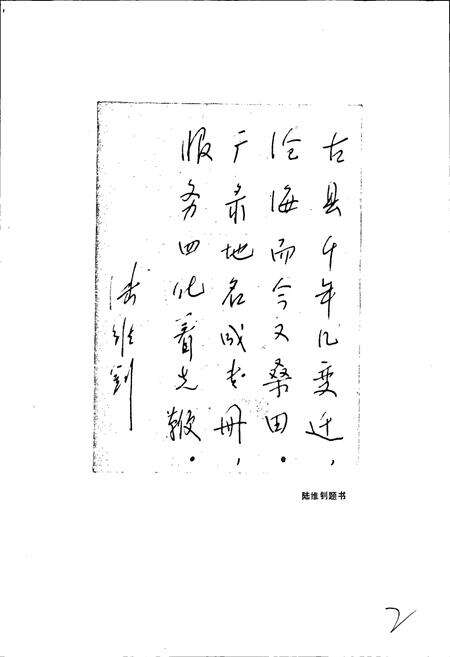 古县千年几变迁，
沧海而今又桑田。
广录地名成专册，
服务四化着先鞭。
陆维钊
陆维钊题书
2